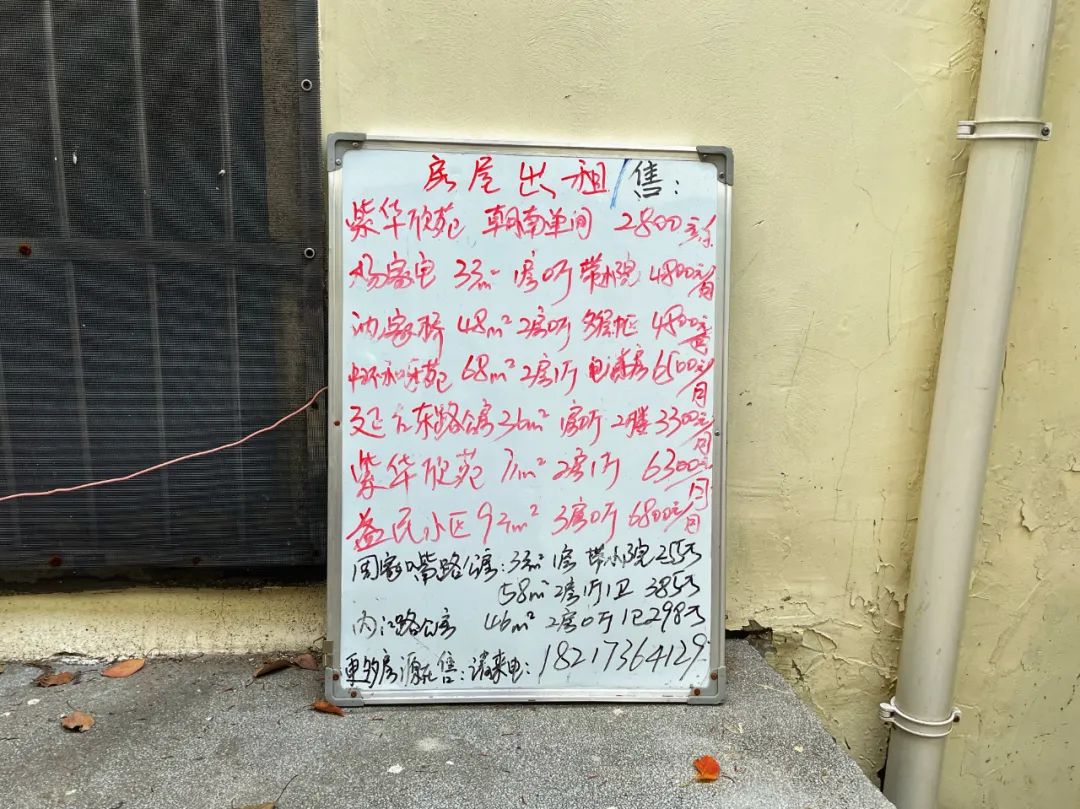 房屋出租/售:
紫华欣苑 朝南单间 2800元/月
杨家宅 33m² 1房0厅 带小院 4800元/月
沈家桥 48m² 2房0厅 多层小区 4800元/月
中环和乐苑 68m² 2房1厅 电梯房 6500元/月
延吉东路公房 36m² 1房0厅 2楼 3300元/月
紫华欣苑 71m² 2房1厅 6300元/月
益民小区 92m² 3房0厅 6800元/月
周家嘴路公房: 33m² 1房 带小院 255万
58m² 2房1厅1卫 385万
内江路公房 46m² 2房0厅1卫 298万
更多房源在售: 请来电: 18217364129